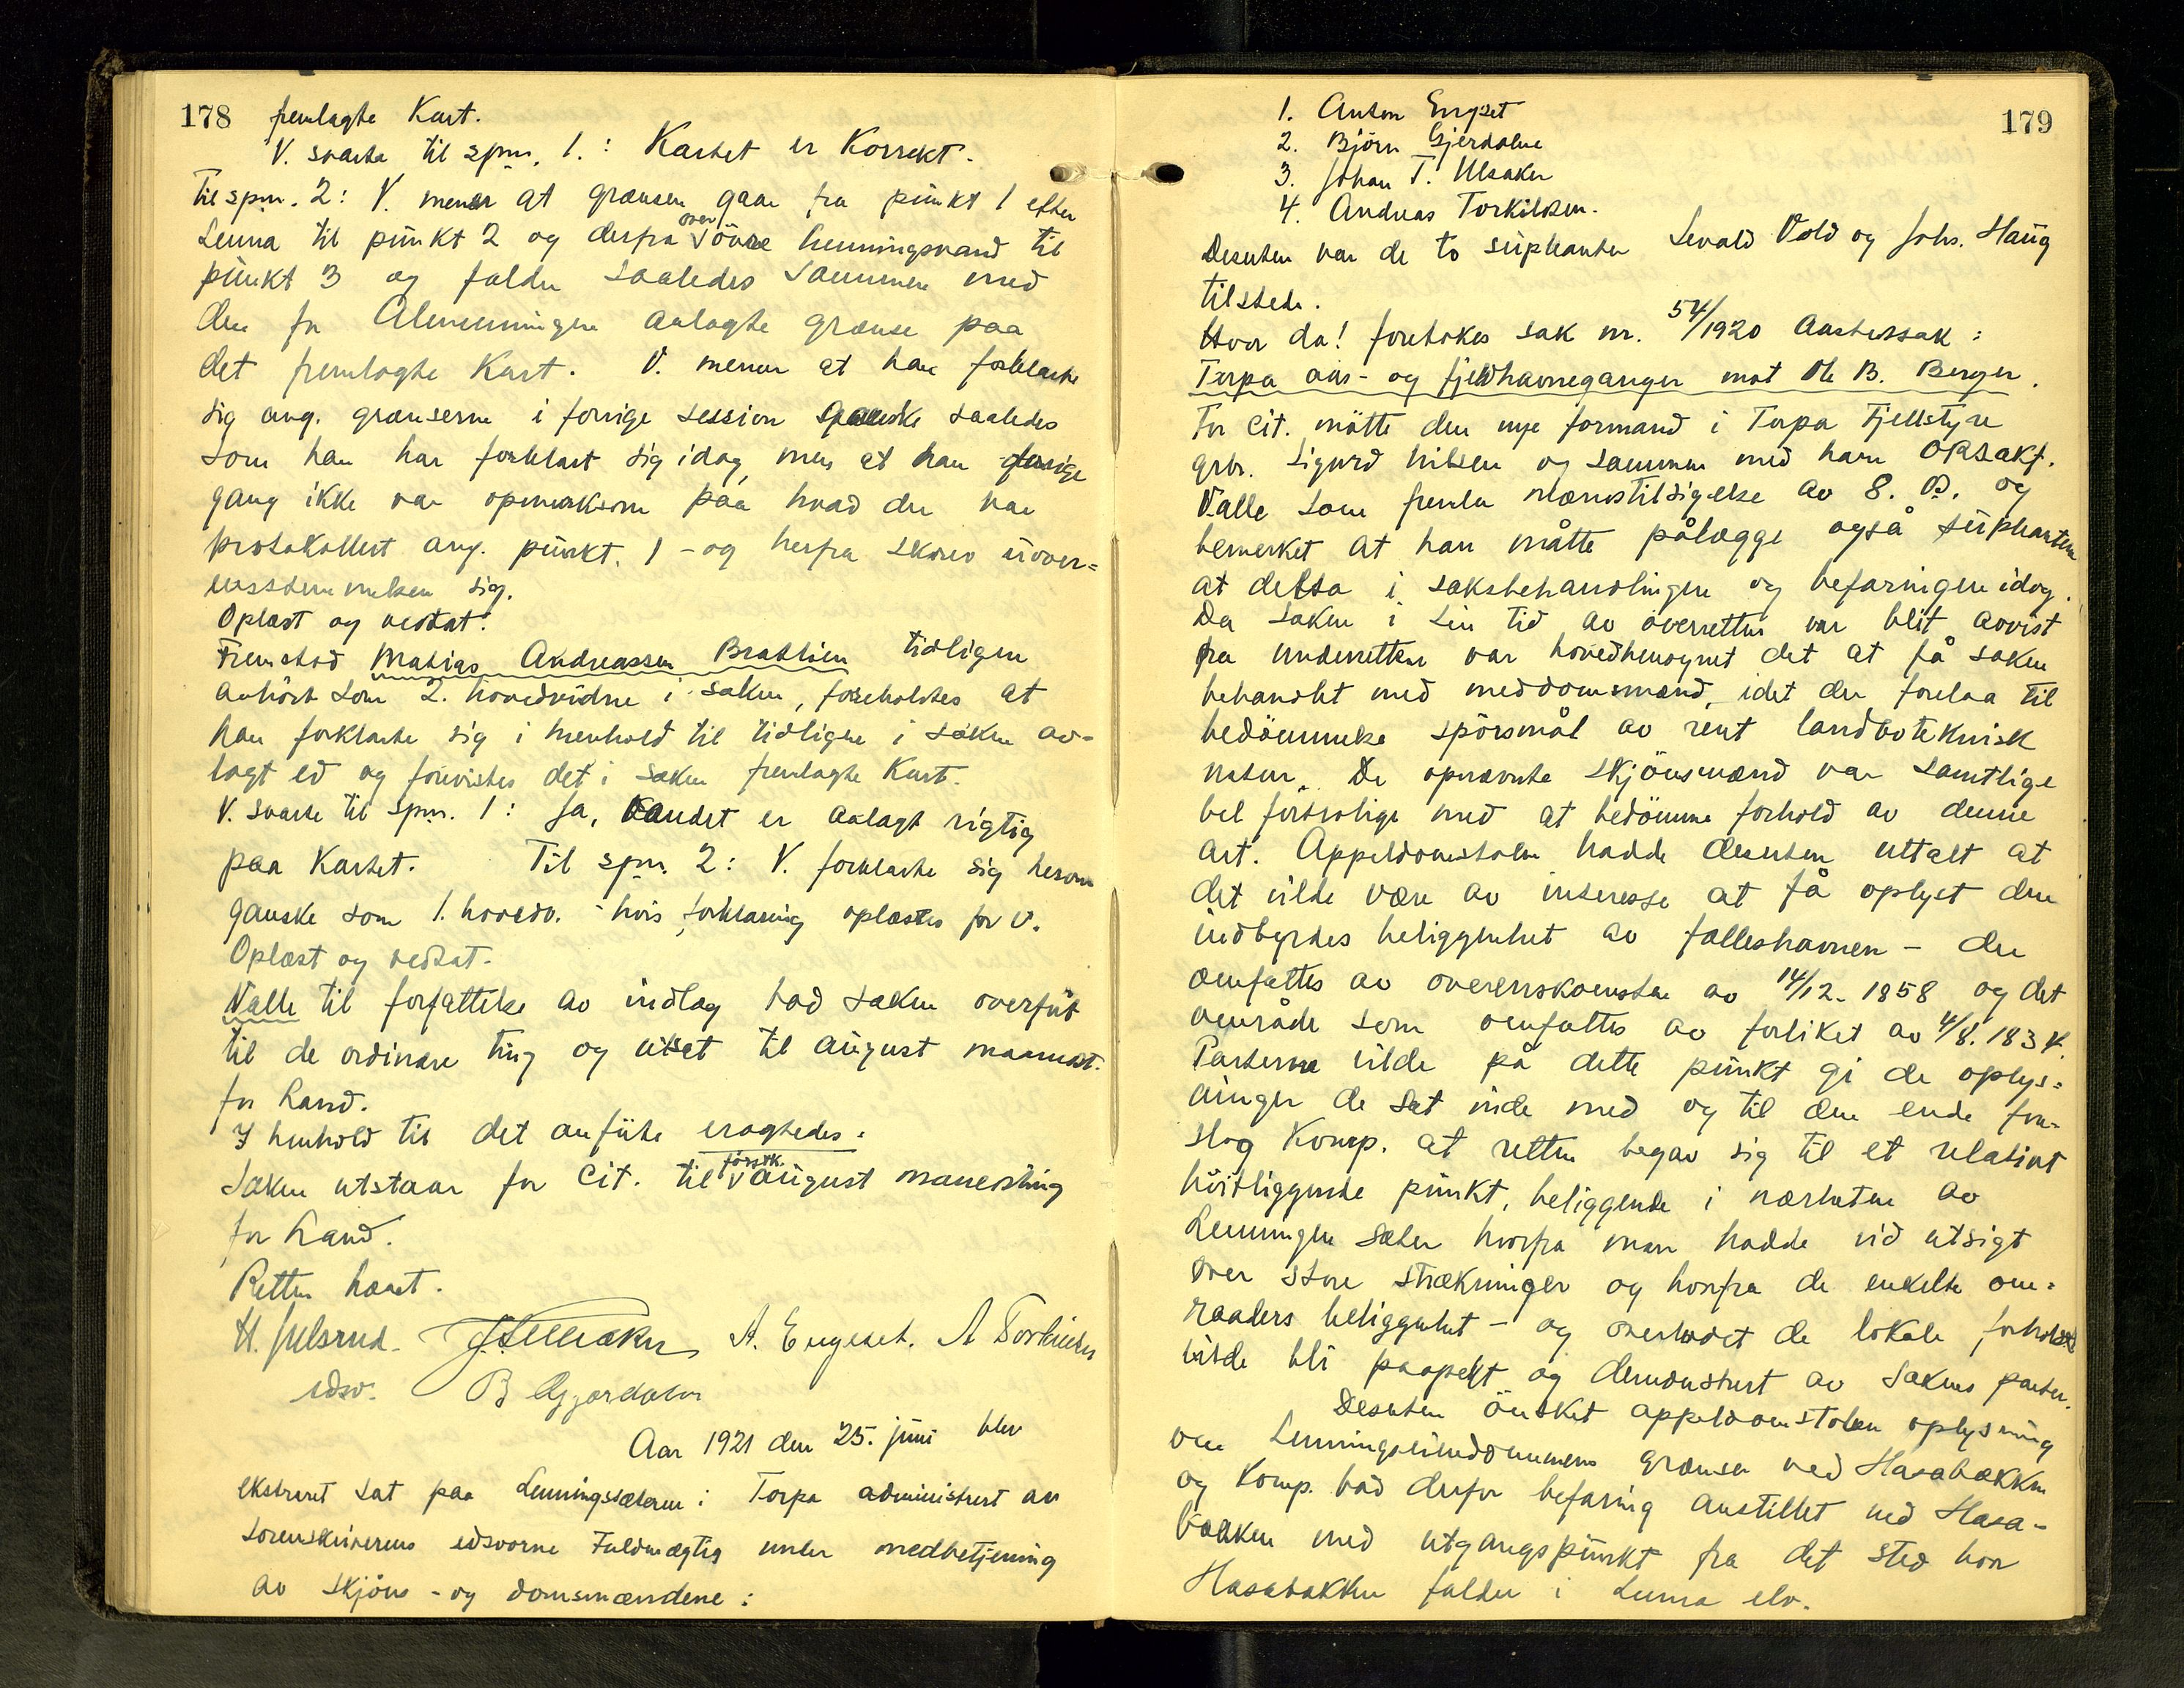 178 fremlagte Kart.
V. svarte til spm. 1.: Kartet er Korrekt.
Til spm. 2: V. mener at grænsen gaar fra punkt 1 efter
Lenna til punkt 2 og derfra over övre henningsvand til
punkt 3 og falder saaledes sammen med
den for Almenningen avlagte grænse paa
det fremlagte Kart. V. mener at han forklarte
sig ang. grænserne i forrige session ganske saaledes
som han har forklart sig idag, men at han forrige
gang ikke var opmerksom paa hvad der var
protokollert ang. punkt. 1 - og herfra skrev uover=
ensstemmelsen sig.
Oplæst og vedtat.
Fremstod Matias Andreassen Bratlien tidligere
avhört som 2. hovedvidne i saken, foreholdtes at
han forklarte sig i henhold til tidligere i saken av-
lagt ed og forevistes det i saken fremlagte Kart.
V. svarte til spm. 1: Ja, vandet er avlagt rigtig
paa Kartet. Til spm. 2: V. forklarte sig herom
ganske som 1. hovedv. - hvis forklaring oplæstes for V.
Oplæst og vedtat.
Valle til forfattelse av indlæg bad saken overfört
til de ordinære ting og utsat til august maanedst.
for Land.
I henhold til det anförte eragtedes:
Saken utstaar for Cit. til förstk. august maanedsting
for Land.
Retten hævet.
H. Julsrud. J.T. Ulsaker A. Engeset. A Torkilsen
edsv. B Gjerdalen
Aar 1921 den 25. juni blev
ekstraret sat paa Lenningssæteren i Torpa administrert av
Sorenskriverens edsvorne Fuldmægtig under medbetjening
av skjöns - og domsmændene:
179
1. Anton Engset
2. Björn Gjerdalen
3. Johan T. Ulsaker
4. Andreas Torkildsen.
Desuten var de to supleanter Sevald Vold og Johs. Haug
tilstede.
Hvor da! foretokes sak nr. 54/1920 Aastedssak:
Torpa aas- og fjeldhavneganger mot Ole B. Berger.
For Cit. mötte den nye formand i Torpa Fjellstyre
grbr. Sigurd Nilsen og sammen med ham O.R.sakf.
Valle som fremla mændstilsigelse av 8. ds. og
bemerket at han måtte pålægge også supleanten
at delta i saksbehandlingen og befaringen idag.
Da saken i sin tid av överretten var blit avvist
fra underretten var hovedhensynet det at få saken
behandlet med meddomsmænd, idet der forelaa til
bedömmelse spörsmål av rent landboteknisk
natur. De opnævnte skjönsmænd var samtlige
vel fortrolige med at bedömme forhold av denne
art. Appeldomstolen hadde desuten uttalt at
det vilde være av interesse at få oplyst den
indbyrdes beliggenhet av felleshavnen - der
omfattes av overenskomsten av 14/12. 1858 og det
område som omfattes av forliket av 4/8. 1834.
Parterne vilde på dette punkt gi de oplys=
ninger de sat inde med og til den ende fore-
slog Komp. at retten begav sig til et relativt
höitliggende punkt, beliggende i nærheten av
Lenningen sæter hvorfra man hadde vid utsigt
over store strækninger og hvorfra de enkelte om=
raaders beliggenhet - og overhodet de lokale forhold
vilde bli paapekt og demonstrert av sakens parter.
Desuten önsket appeldomstolen oplysning
om Lenningseiendommens grænser ved Hasabækken
og Komp. bad derfor befaring anstillet ved Hasa-
bækken med utgangspunkt fra det sted hvor
Hasabækken falder i Lenna elv.